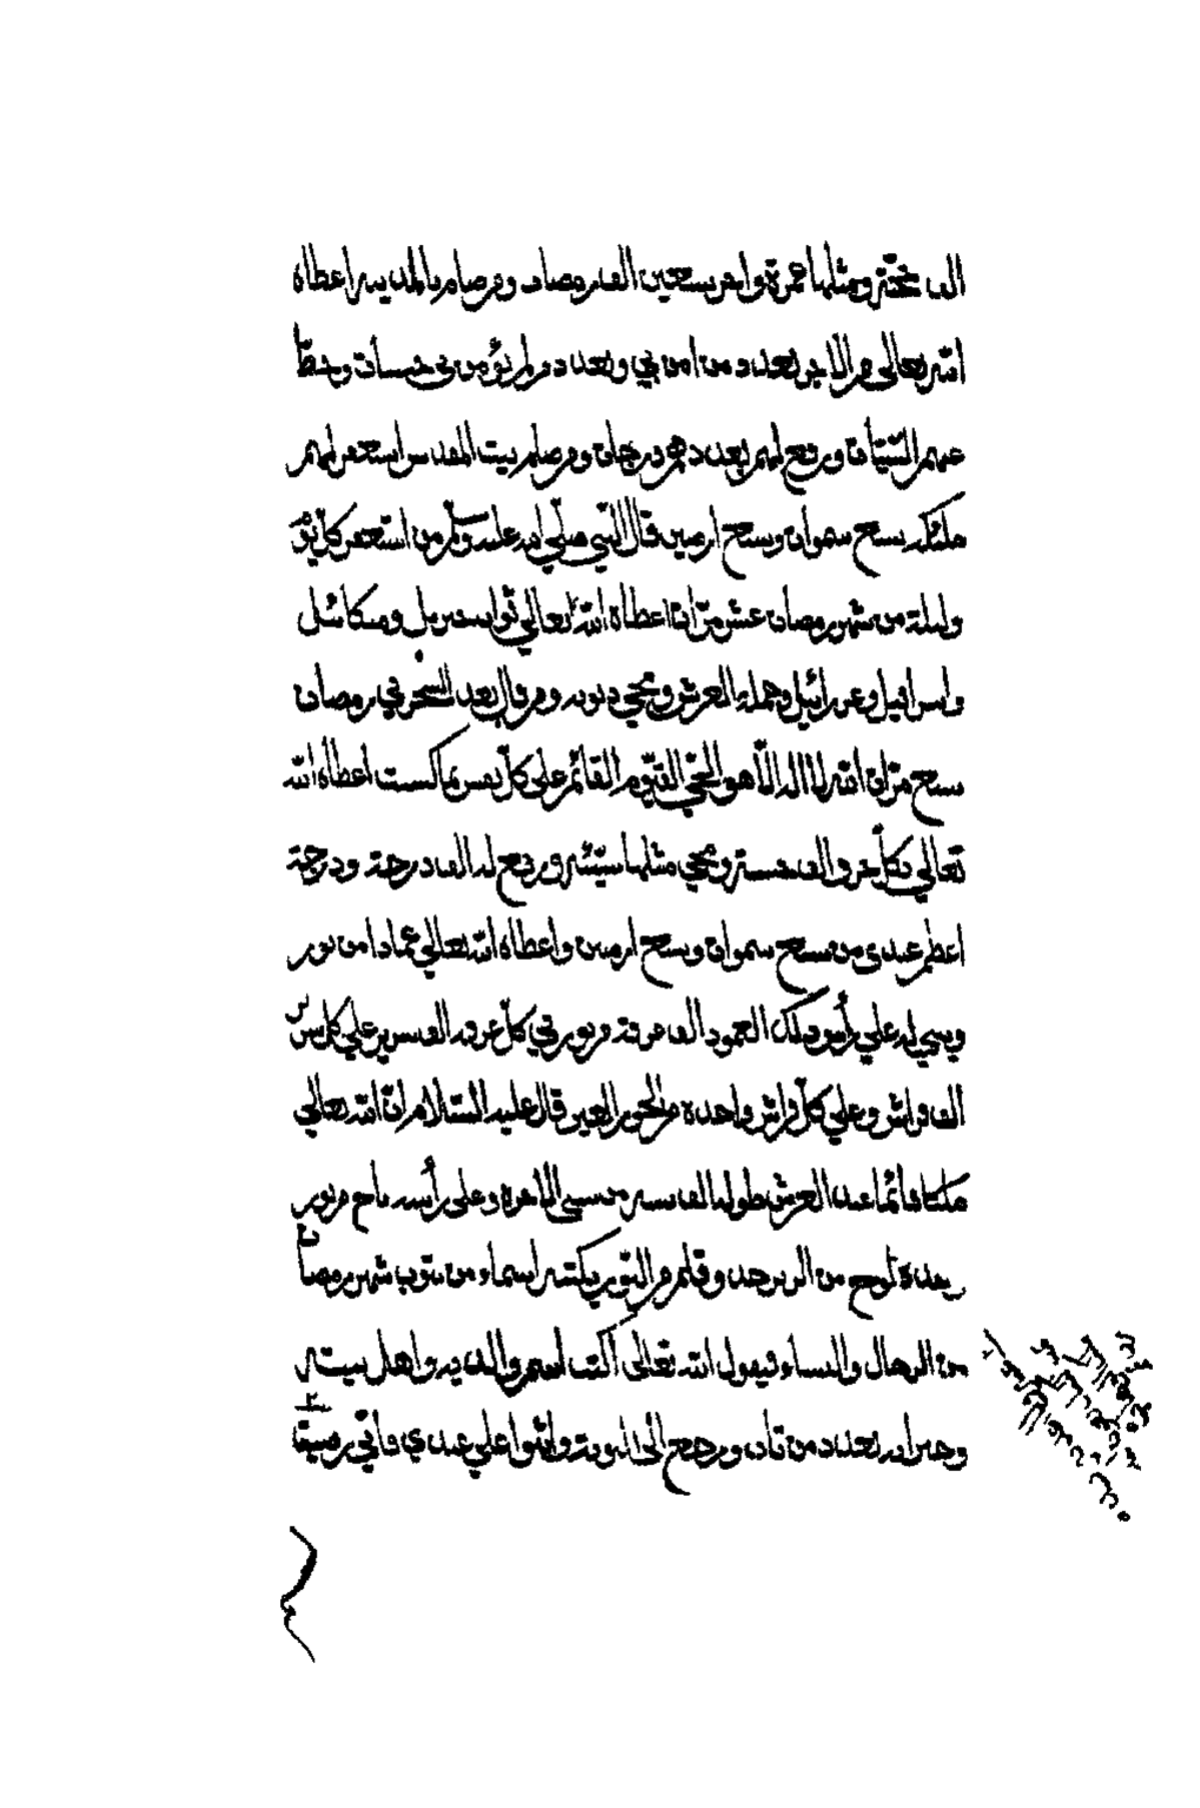 الف حجّة ومثلها عمرة واجر سبعين الف رمضان ومن صام بالمدينة اعطاه
الله تعالى من الاجر بعدد من امن بي وبعدد من لم يؤمن بي حسنات وحطّ
عنهم السّيّئات ورفع لهم بعددهم درجات ومن صام ببيت المقدس استغفر لهم
ملئكة سبع سموات وسبع ارضين قال النّبي صلّى الله عليه وسلّم من استغفر كلّ يوم
وليلة من شهر رمضان عشر مرّات اعطاه الله تعالى ثواب جبريل وميكائيل
واسرافيل وعزرائيل وحملة العرش ومحي ذنوبه ومن قال بعد السّحر في رمضان
سبع مرّات الله لا اله الّا هو الحيّ القيّوم القائم على كلّ نفس بما كسبت اعطاه الله
تعالى بكلّ حرف الف حسنة ومحي مثلها سيّئة ورفع له الف درجة ودرجة
اعظم عندى من سبع سموات وسبع ارضين واعطاه الله تعالى عمادا من نور
على رأس ذلك العمود الف غرفة من نور في كلّ غرفة الف سرير على كل سرير
الف فراش وعلى كلّ فراش واحدة من الحور العين قال عليه السّلام انّ لله تعالى
ملكا قائما عند العرش طوله الف سنة من سنى الاخرة وعلى رأسه تاج من نور
بيده لوح من الزبرجد وقلم من النّور يكتب اسماء من يتوب شهر رمضان
من الرجال والنساء فيقول الله تعالى اكتب اسمه والديه واهل بيته
وجيرانه بعدد من تاب ورجع الى التوبة واثنوا على عبدي فانّي رضيت